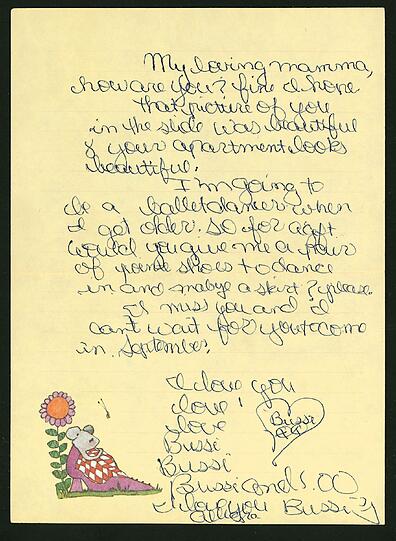 My loving mamma,
how are you? fine I hope
that picture of you
in the slide was beautiful
& your apartment looks
beautiful.
I'm going to
be a balletdancer when
I get older. so for a gift
would you give me a pair
of your shoes to dance
in and maybe a skirt? please.
I miss you and I
can't wait for you to come
in September.
I love you
love
love
Bussi
Bussi
Bussi
Bussi and
I love you Bussi
Allegra